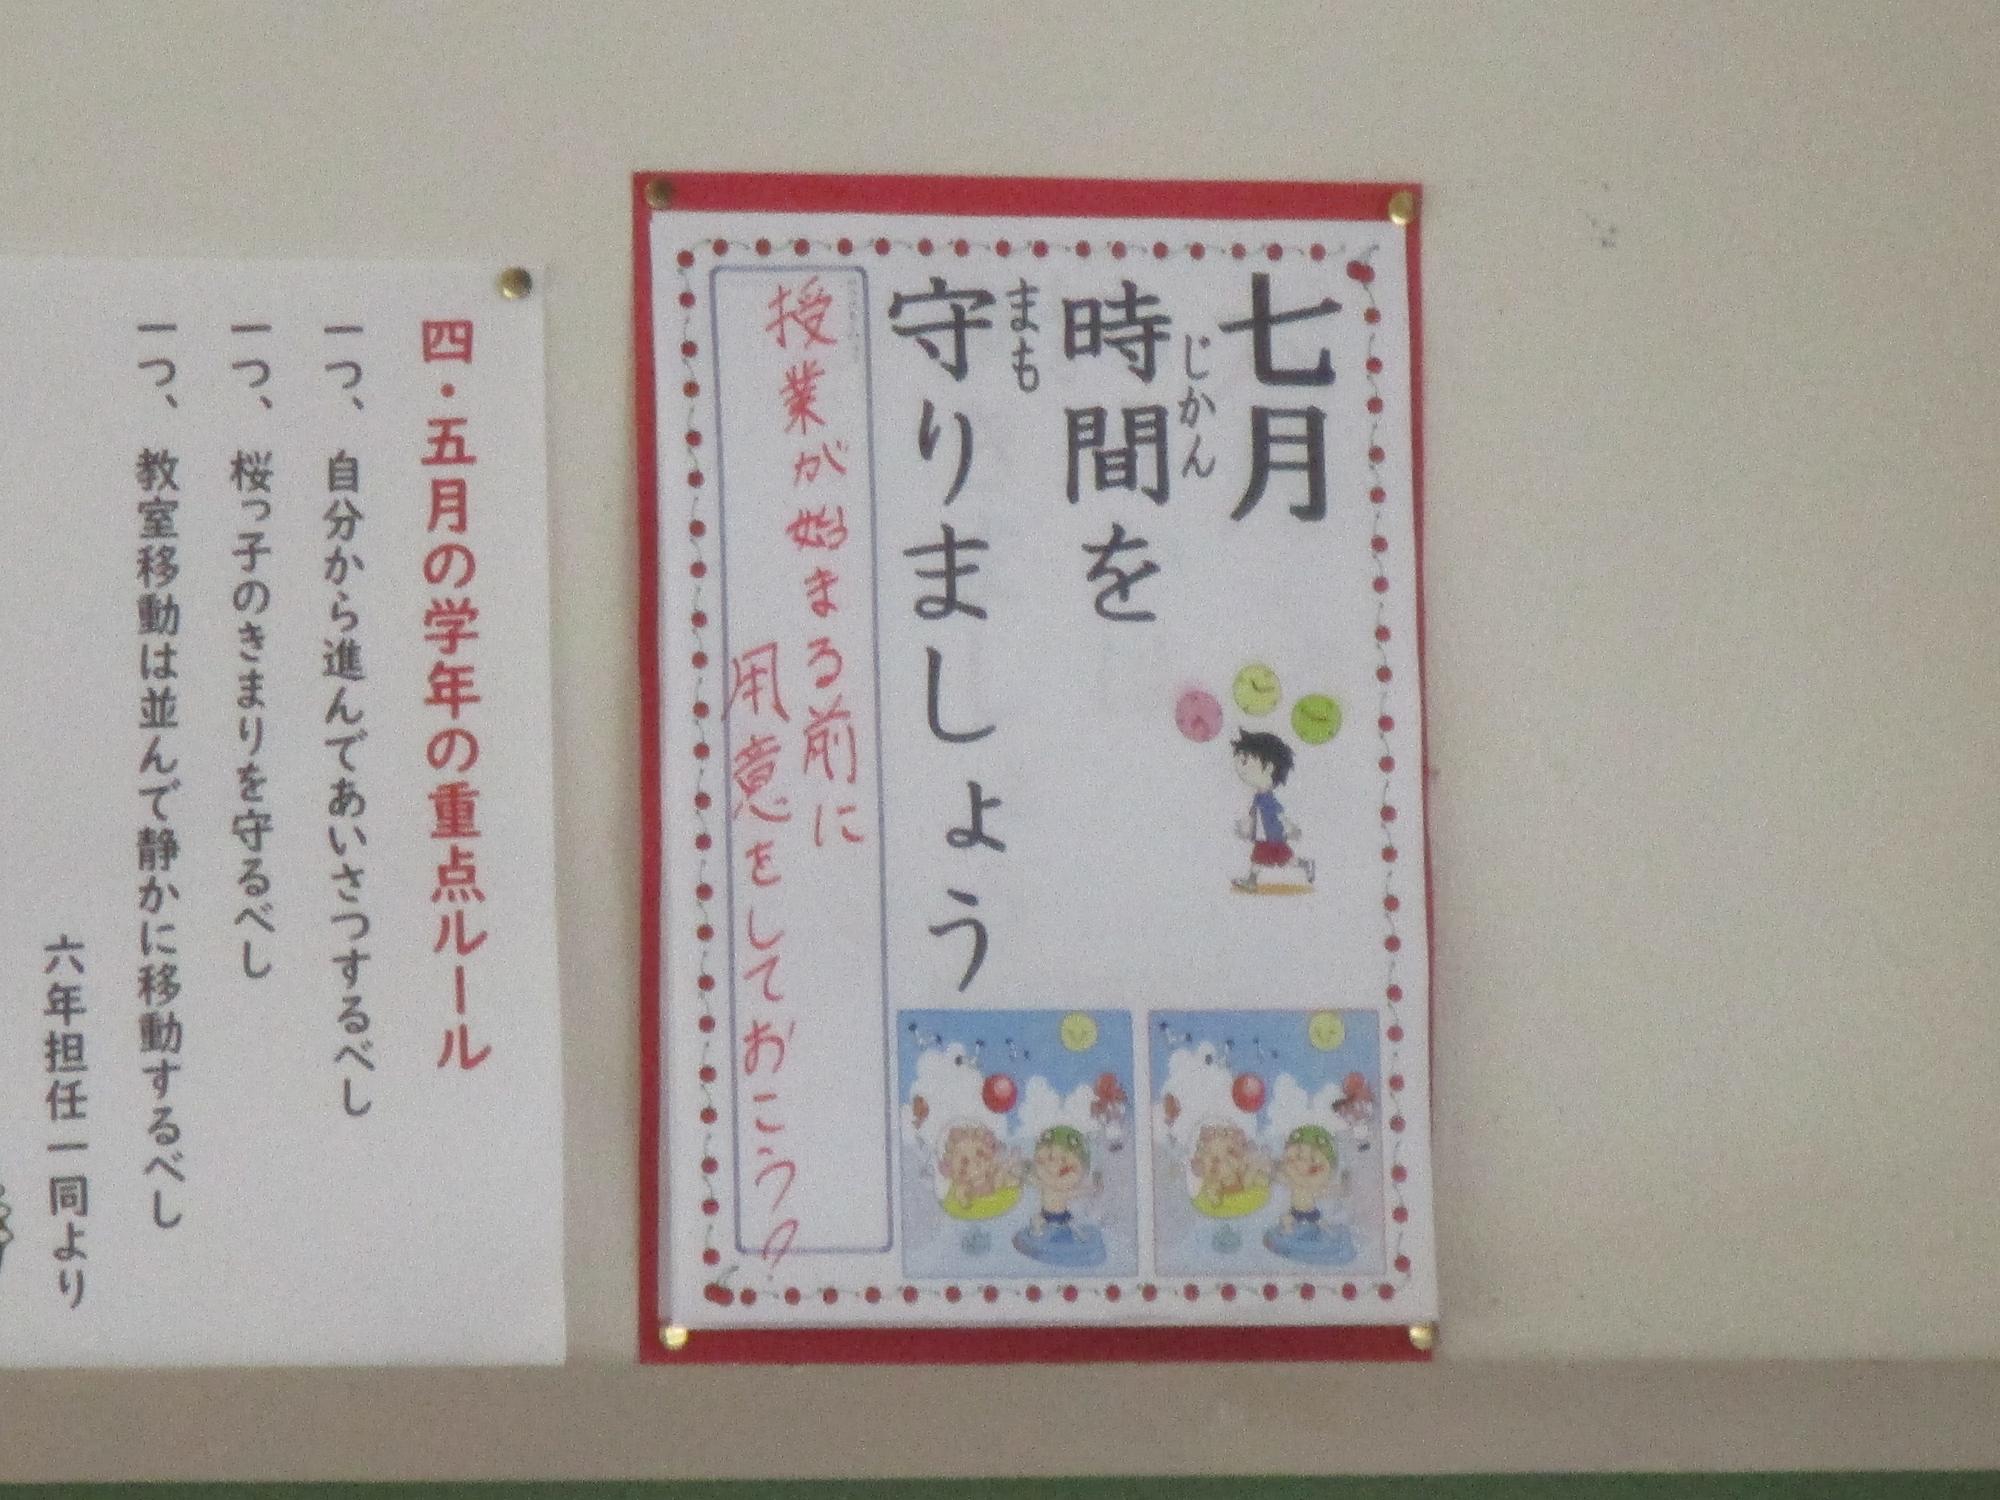 七月
時間を
じかん
守りましょう
まも
授業が始まる前に
用意をしておこう?
四・五月の学年の重点ルール
一つ、自分から進んであいさつするべし
一つ、桜っ子のきまりを守るべし
一つ、教室移動は並んで静かに移動するべし
六年担任一同より